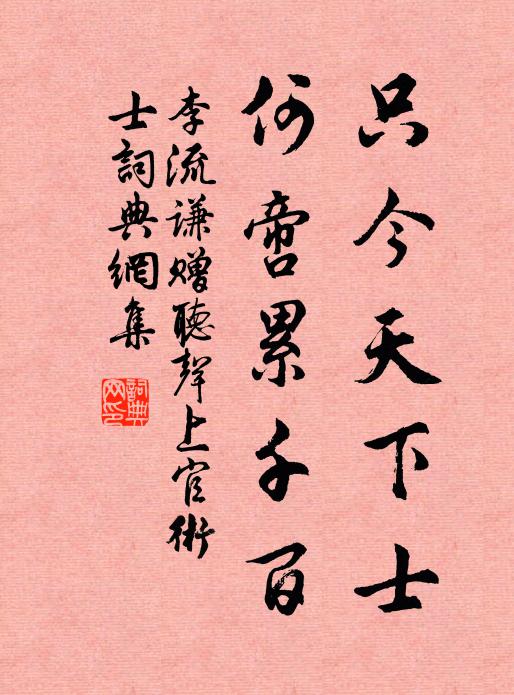 只今天下士
何啻累千百
李流谦赠聽聲上官術
士詞典網集
詞典
网印